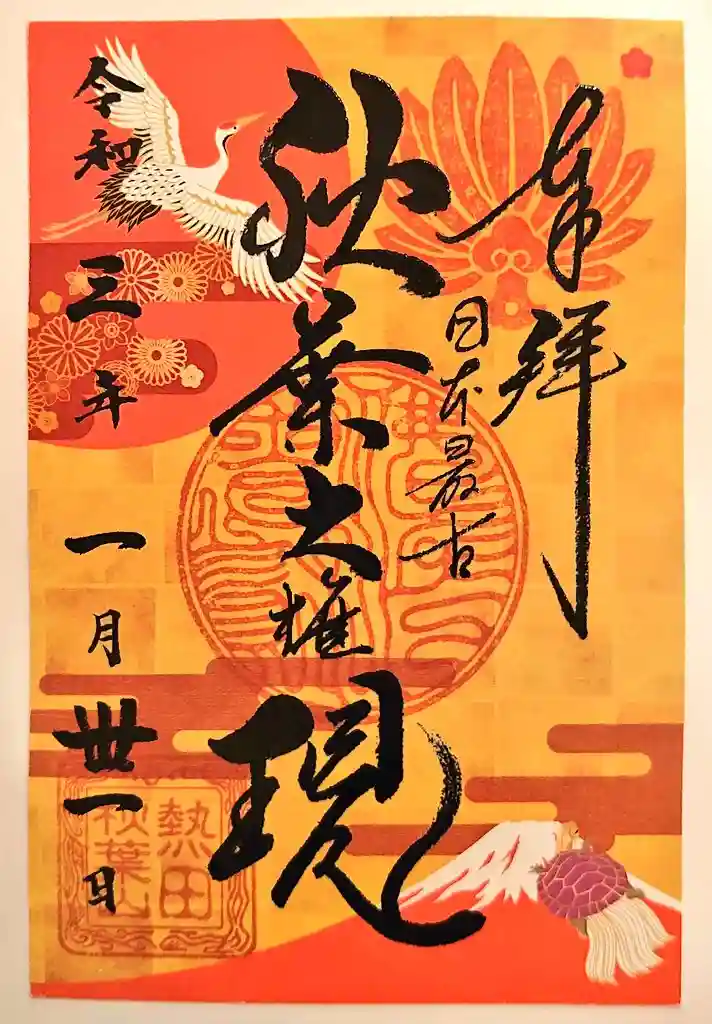 奉拝
日本最古
秋葉大権現
令和三年一月卅一日
熱田
秋葉山